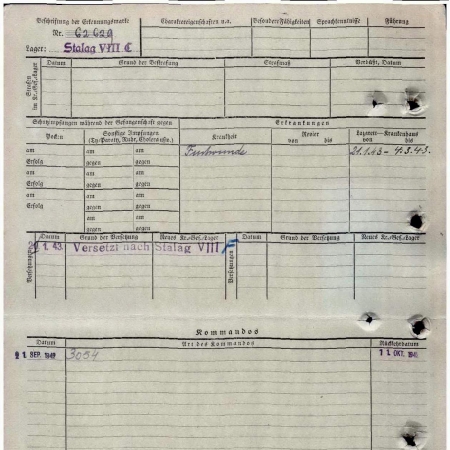 Beschriftung der Erkennungsmarke Charaktereigenschaften u.a. Besondere Fähigkeiten Sprachkenntnisse Führung
Nr. 62629
Lager: Stalag VIII C
Strafen im Kr.-Gef.-Lager Datum Grund der Bestrafung Strafmaß Verbüßt, Datum
Schutzimpfungen während der Gefangenschaft gegen Erkrankungen
Pocken Sonstige Impfungen (Ty. Paraty, Ruhr, Cholera usw.) Krankheit Revier von bis Lazarett – Krankenhaus von bis
am am am 21.1.43 – 4.3.43.
Erfolg gegen gegen
am am am
Erfolg gegen gegen
am am am
Erfolg gegen gegen
am am
gegen gegen
Versetzungen Datum Grund der Versetzung Neues Kr.-Gef.-Lager Versetzungen Datum Grund der Versetzung Neues Kr.-Gef.-Lager
1. 43. Versetzt nach Stalag VIII F
Kommandos
Datum Art des Kommandos Rückkehrdatum
SEP. 3054 11. OKT.